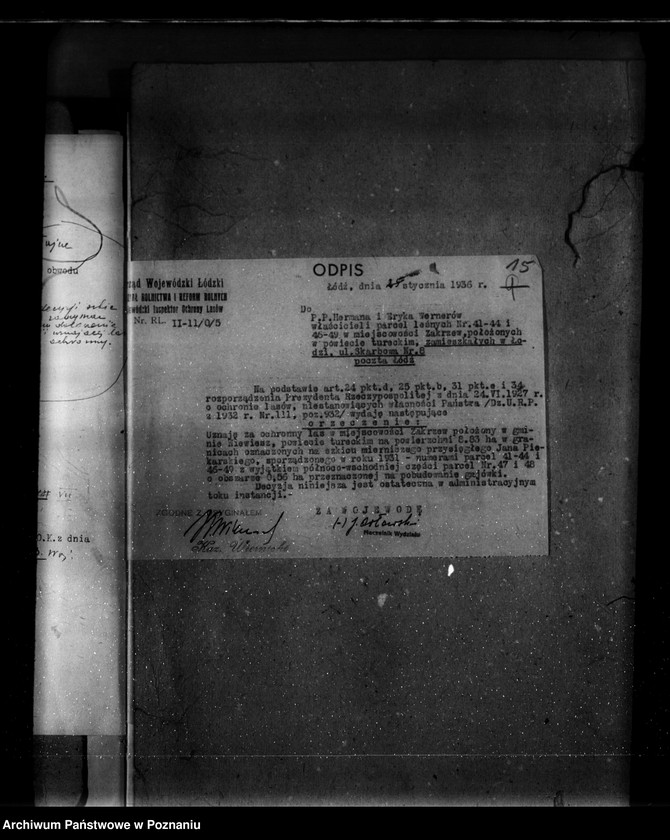 ODPIS
15
Urząd Wojewódzki Łódzki
ROLNICTWA I REFORM ROLNYCH
Inspektor Ochrony Lasów
Nr. RL. II-11/0/5
Łódź, dnia stycznia 1936 r.
Do
P.P.Hermana i Eryka Wernerów
właścicieli parcel leśnych Nr.41-44 i
46-49 w miejscowości Zakrzew,położonych
w powiecie tureckim, zamieszkałych w Ło-
dzi, ul.Skarbowa Nr.8
poczta Łódź
Na podstawie art.24 pkt.d, 25 pkt.b, 31 pkt.e i 34
rozporządzenia Prezydenta Rzeczypospolitej z dnia 24.VI.1927 r.
o ochronie lasów, niestanowiących własności Państwa /Dz.U.R.P
z 1932 r. Nr.111, poz.932/ wydaję następujące
orzeczenie:
Uznaję za ochronny las w miejscowości Zakrzew położony w gmi-
nie Niewiesz, powiecie tureckim na powierzchni 8.83 ha w gra-
nicach oznaczonych na szkicu mierniczego przysięgłego Jana Pie-
karskiego, sporządzonego w roku 1931 - numerami parcel 41-44 i
46-49 z wyjątkiem północno-wschodniej części parcel Nr.47 i 48
o obszarze 0,56 ha przeznaczonej na pobudowanie gajówki.
Decyzja niniejsza jest ostateczna w administracyjnym
toku instancji.-
ZGODNE Z ORYGINAŁEM
ZA WOJEWODĘ
Naczelnik Wydziału
obwodu
O.K. z dnia
Archiwum Państwowe w Poznaniu